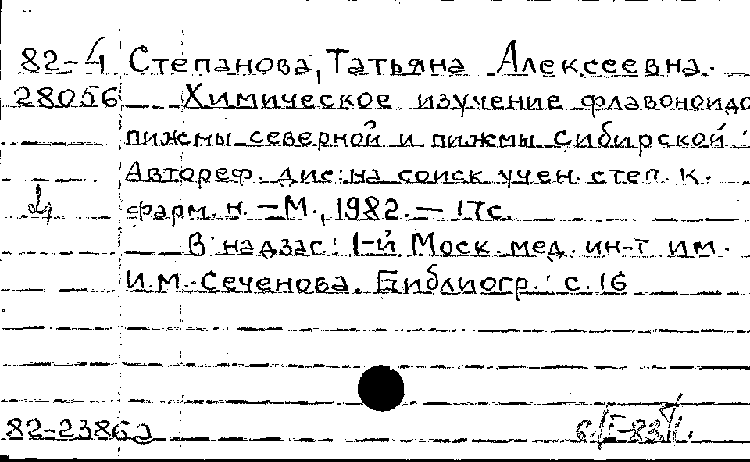 82-4 Степанова, Татьяна Алексеевна.
28056 Химическое изучение флавоноидо
пижмы северной и пижмы сибирской :
Автореф. дис. на соиск. учен. степ. к.
фарм. н. — М., 1982. — 17с.
В надзаг: 1-й Моск. мед. ин-т им.
И.М. Сеченова. Библиогр.: с. 16
82-2386